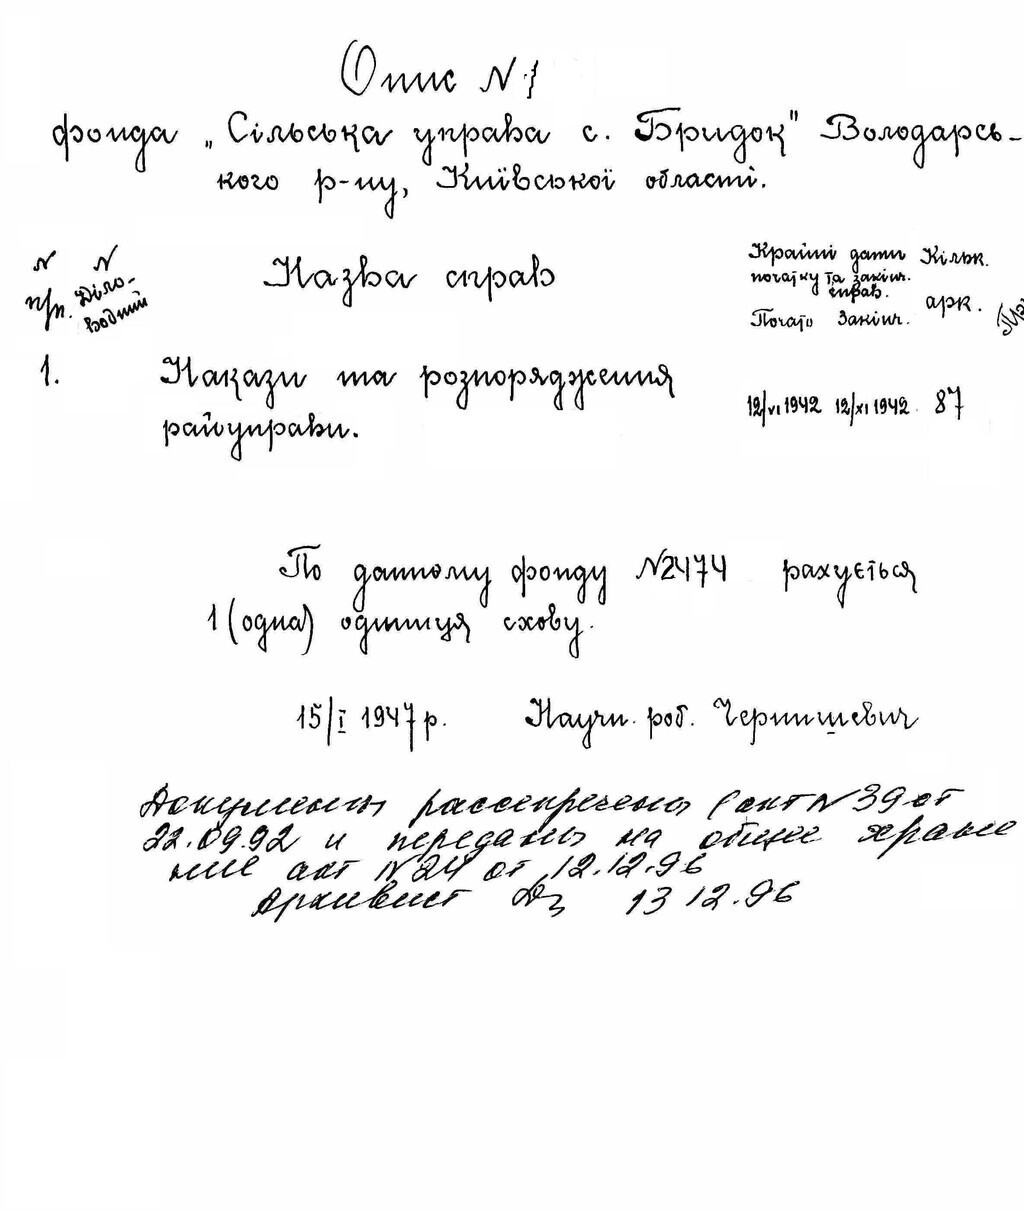 Опис N 1
фонда „Сільська управа с. Бридок" Володарсь-
кого р-ну, Київської області.
N п/п. N Діло-
водний
Назва справ
Крайні дати
початку та закінч.
справ.
Почато Закінч.
Кільк.
арк.
1. Накази та розпорядження
райуправи. 12/VI 1942 12/XI 1942. 87
По данному фонду N2474 рахується
1 (одна) одиниця схову.
15/I 1947 р. Научн. роб. Чернишевич
Документы рассекречены (акт N 39 от
22.09.92 и переданы на общее хране
ние акт N 24 от 12.12.96
Архивист 13 12.96